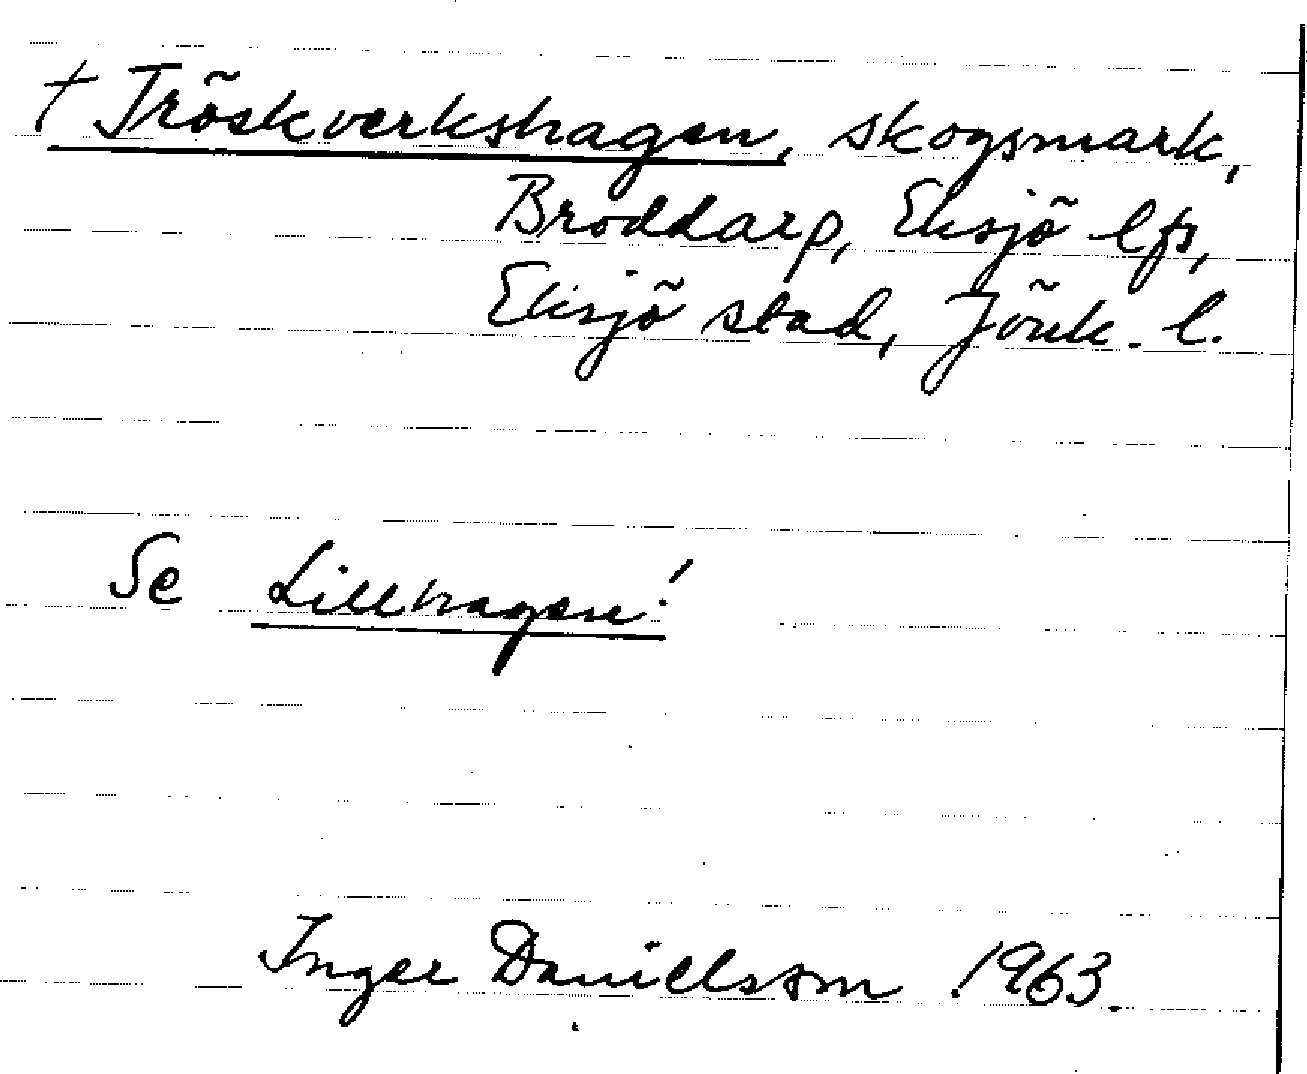 † Tröskverkshagen, skogsmark,
Broddarp, Eksjö lfs,
Eksjö stad, Jönk. l.
Se Lillhagen!
Inger Danielsson 1963.